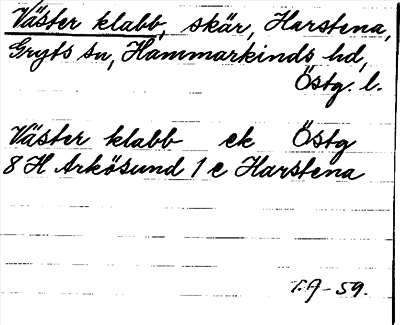 Väster klabb, skär, Harstena,
Gryts sn, Hammarkinds hd,
Östg. l.
Väster klabb ek Östg
8 H Arkösund 1 c Harstena
T.A-59.